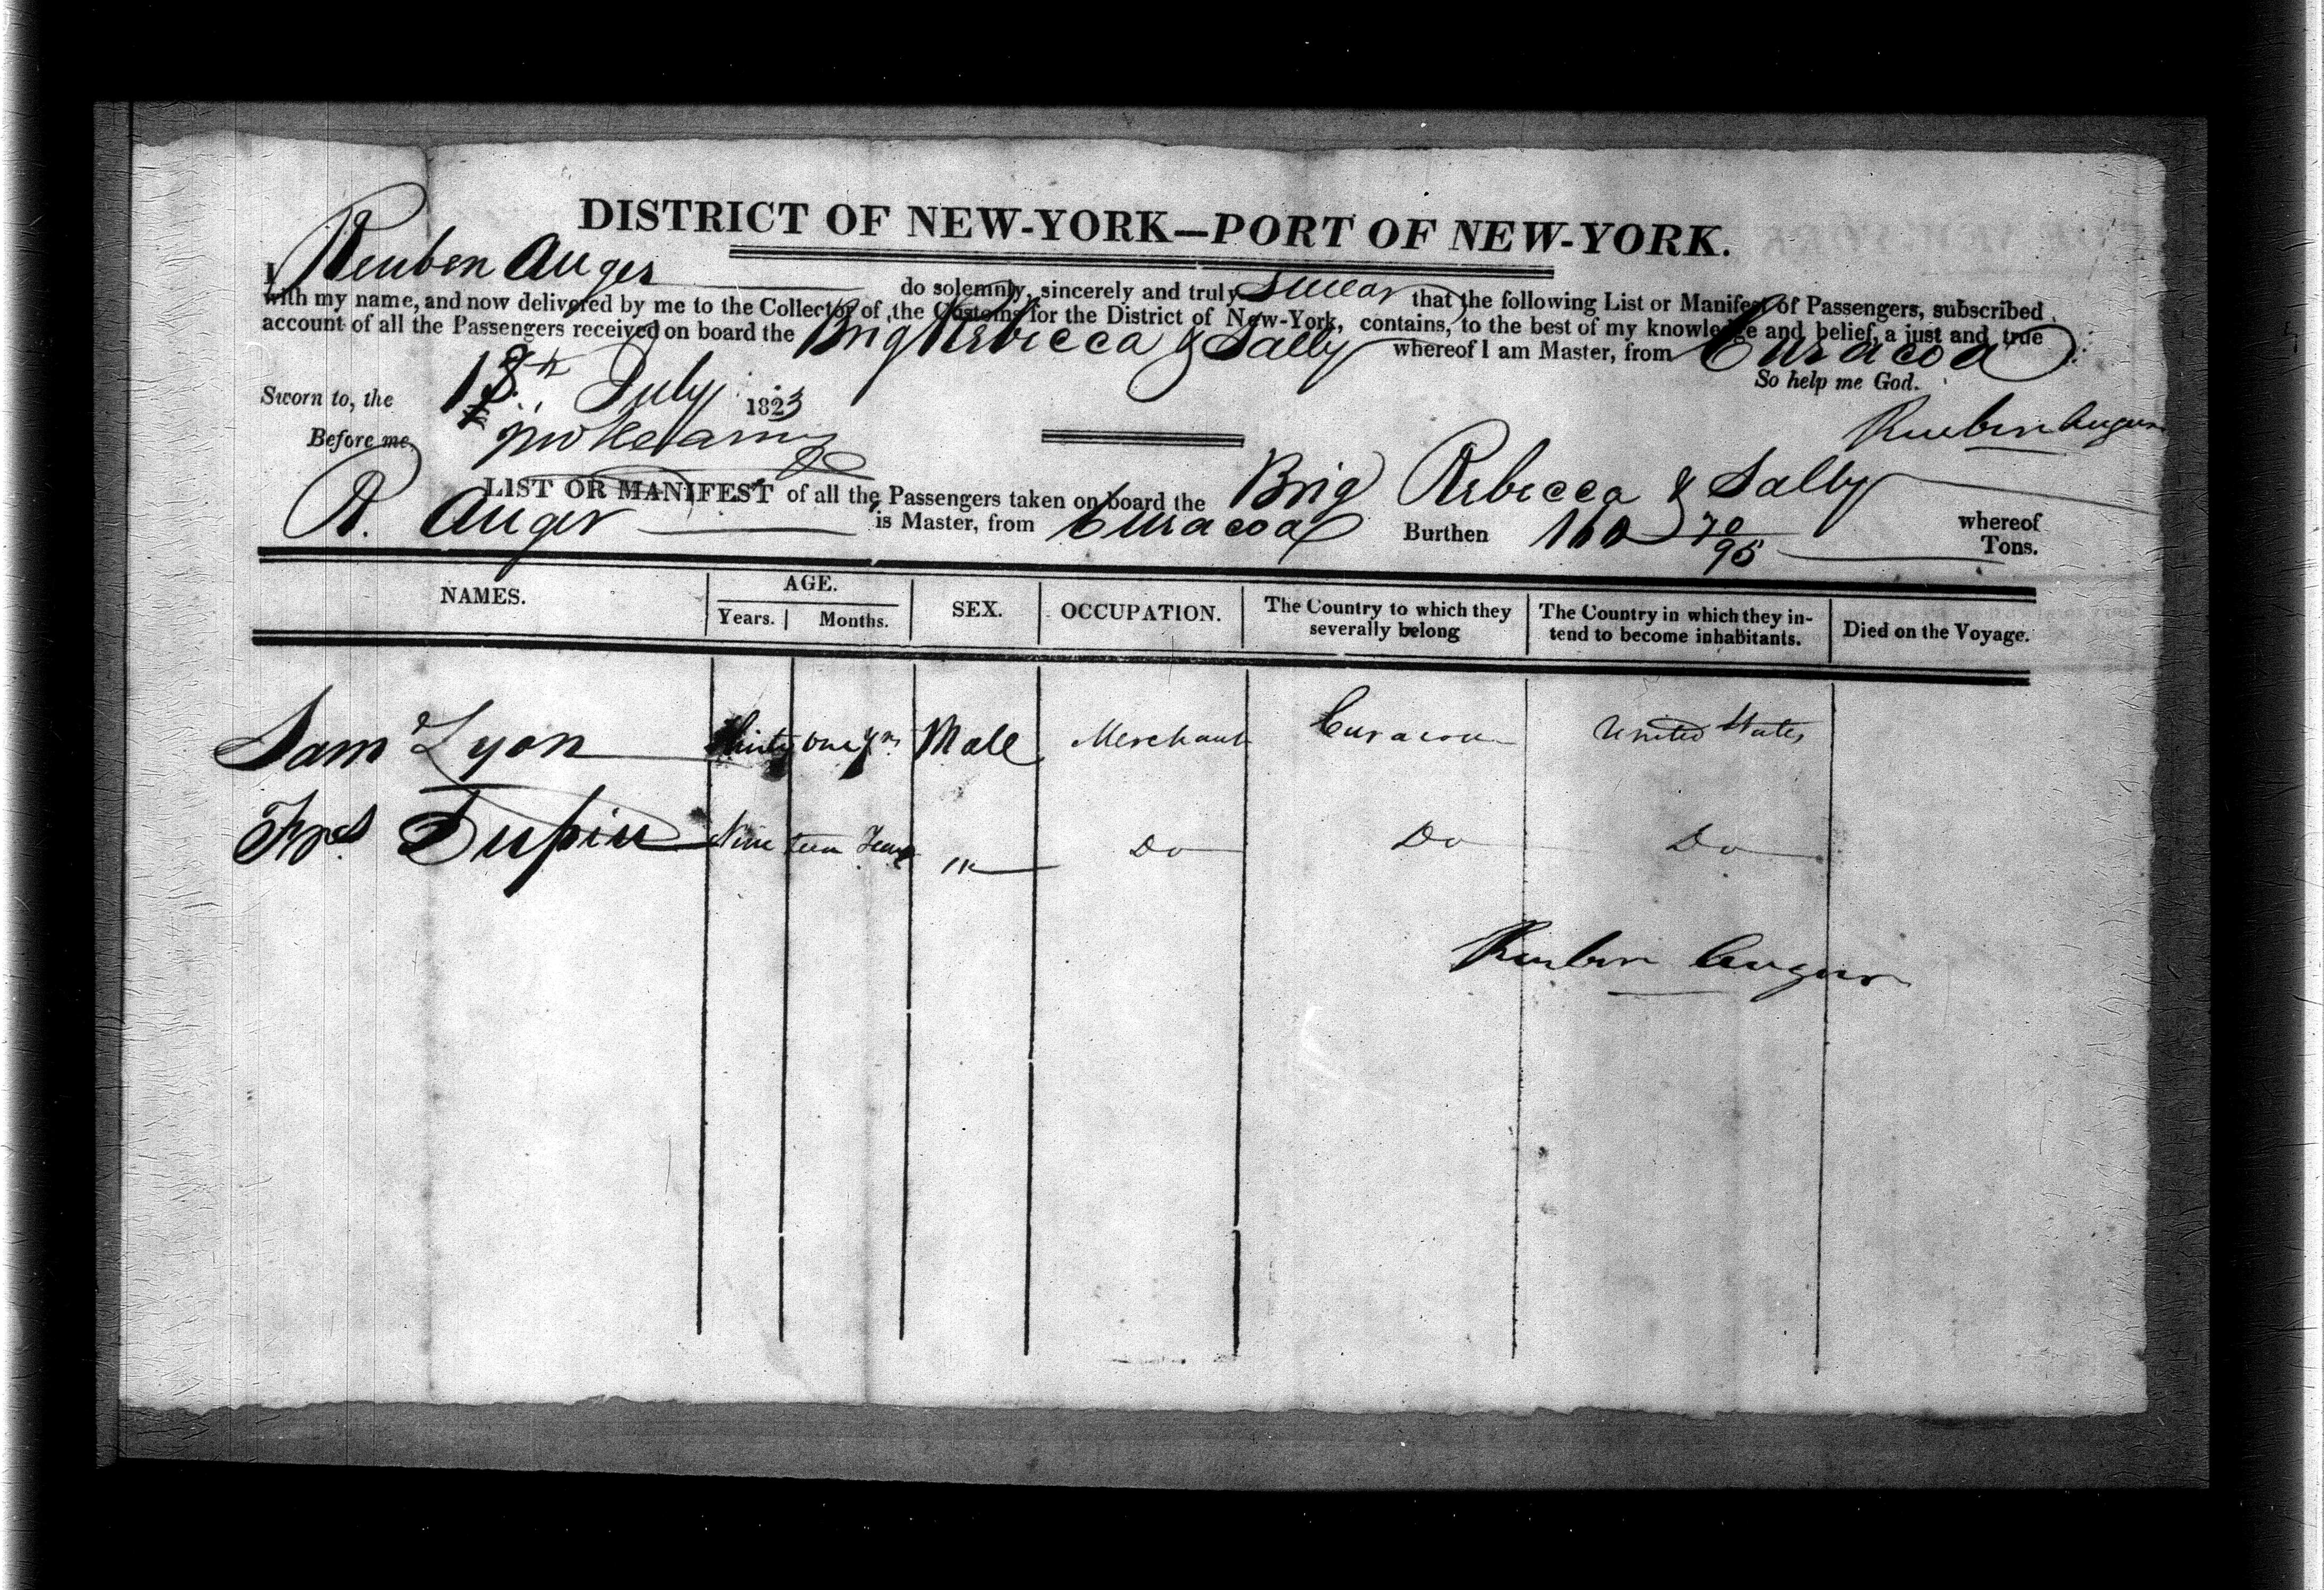 DISTRICT OF NEW-YORK—PORT OF NEW-YORK.
I Reuben Auger do solemnly, sincerely and truly swear that the following List or Manifest of Passengers, subscribed
with my name, and now delivered by me to the Collector of the Customs for the District of New-York, contains, to the best of my knowledge and belief, a just and true
account of all the Passengers received on board the Brig Rebecca & Sally whereof I am Master, from Curacoa
So help me God.
Sworn to, the 18th July 1823
Before me,
Reuben Augur
LIST OR MANIFEST of all the Passengers taken on board the Brig Rebecca & Sally whereof
R. Auger is Master, from Curacoa Burthen 160 70/95 Tons.
NAMES. AGE. Years. Months. SEX. OCCUPATION. The Country to which they severally belong The Country in which they intend to become inhabitants. Died on the Voyage.
Sam Lyon Thirty one yrs Male Merchant Curacoa United States
Dupin Nineteen Years m Do Do Do
Reuben Augur